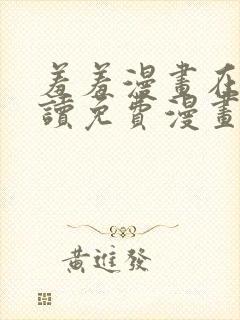 羞羞漫畫在
讀免費漫畫
黃進發